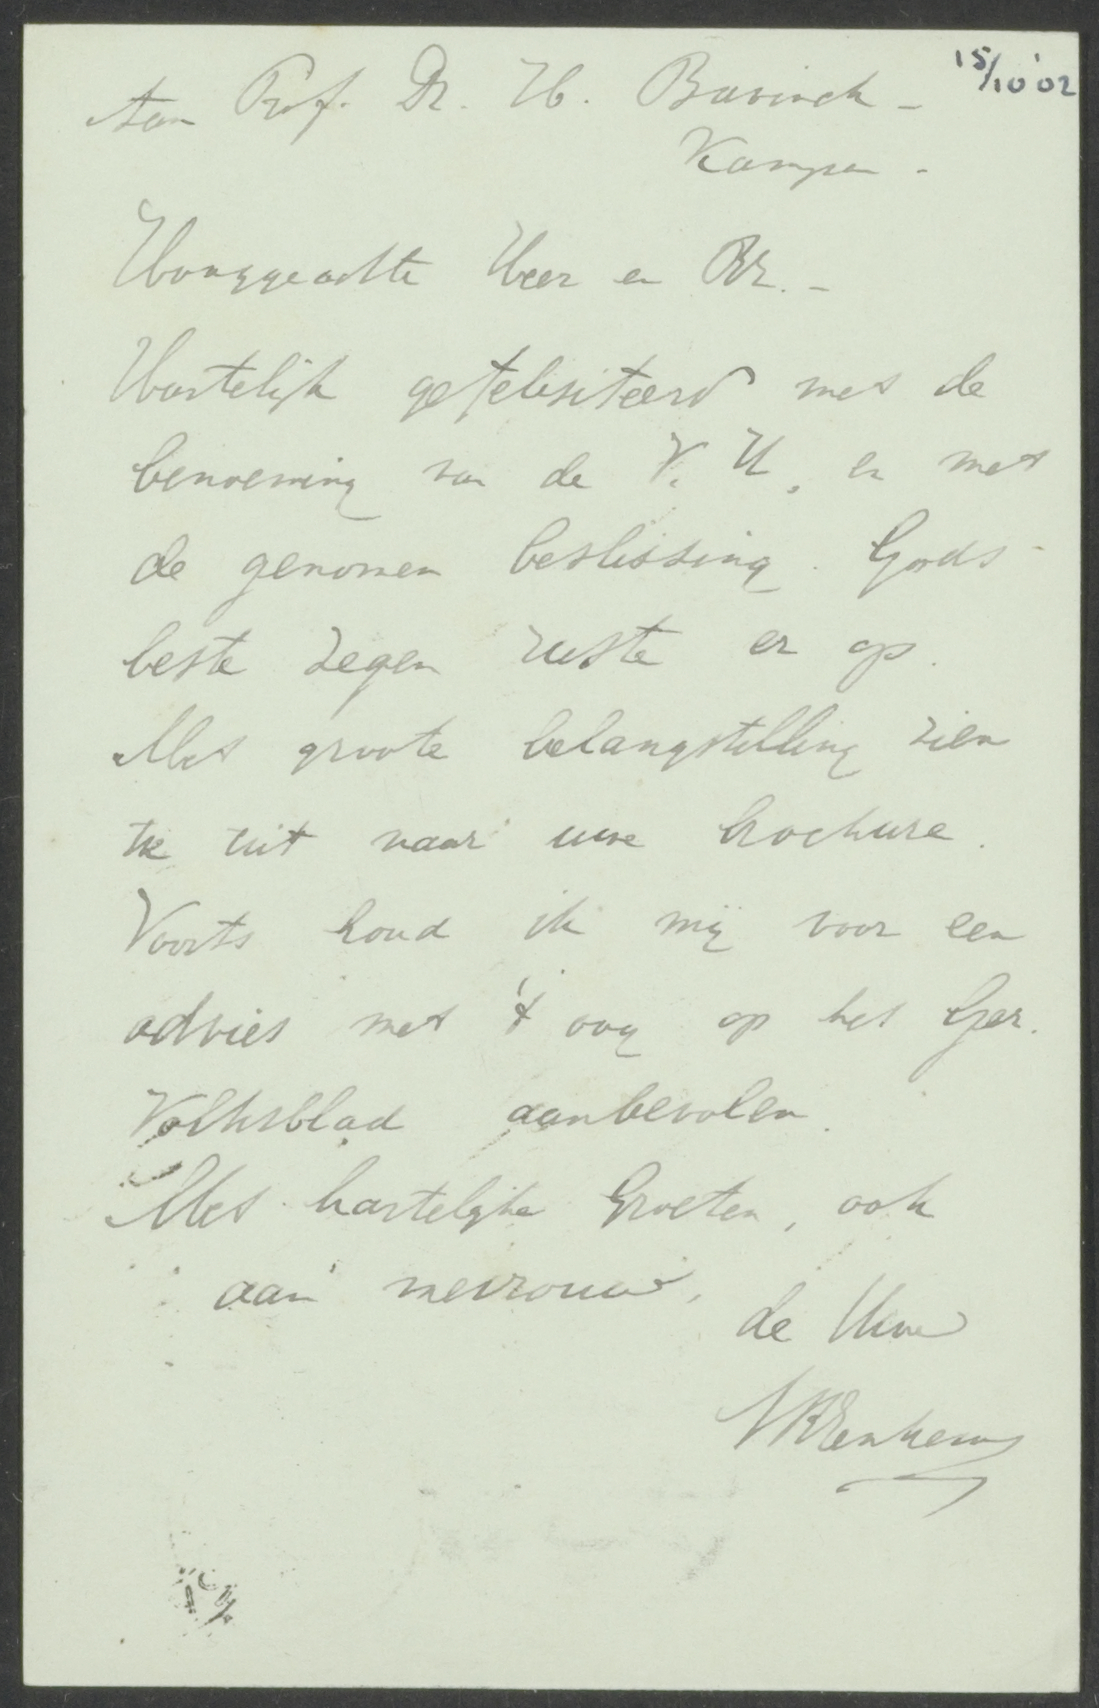 15/10'02
Aan Prof. Dr. H. Bavinck -
Kampen -
Hooggeachte Heer en Br. -
Hartelijk gefelisiteerd met de
benoeming van de V. U. en met
de genomen beslissing. Gods
beste zegen ruste er op.
Met groote belangstelling zien
we uit naar uwe brochure.
Voorts houd ik mij voor een
advies met 't oog op het Ger.
Volksblad aanbevolen.
Met hartelijke Groeten, ook
aan mevrouw,
de Uwe